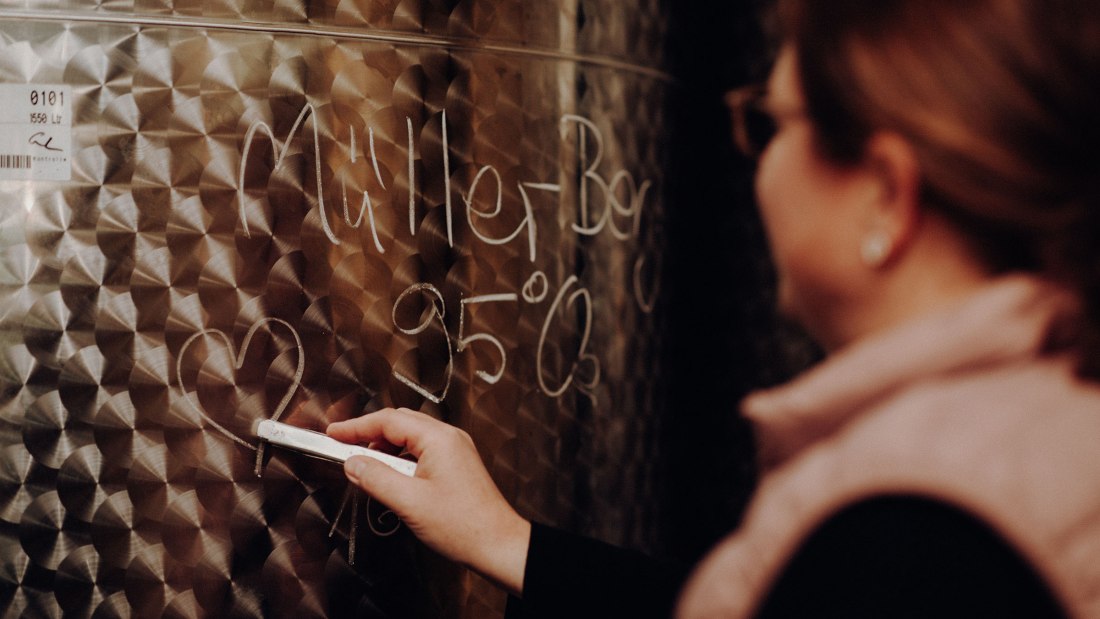 0101
1550 Ltr
Müller-Ber
95° Oe